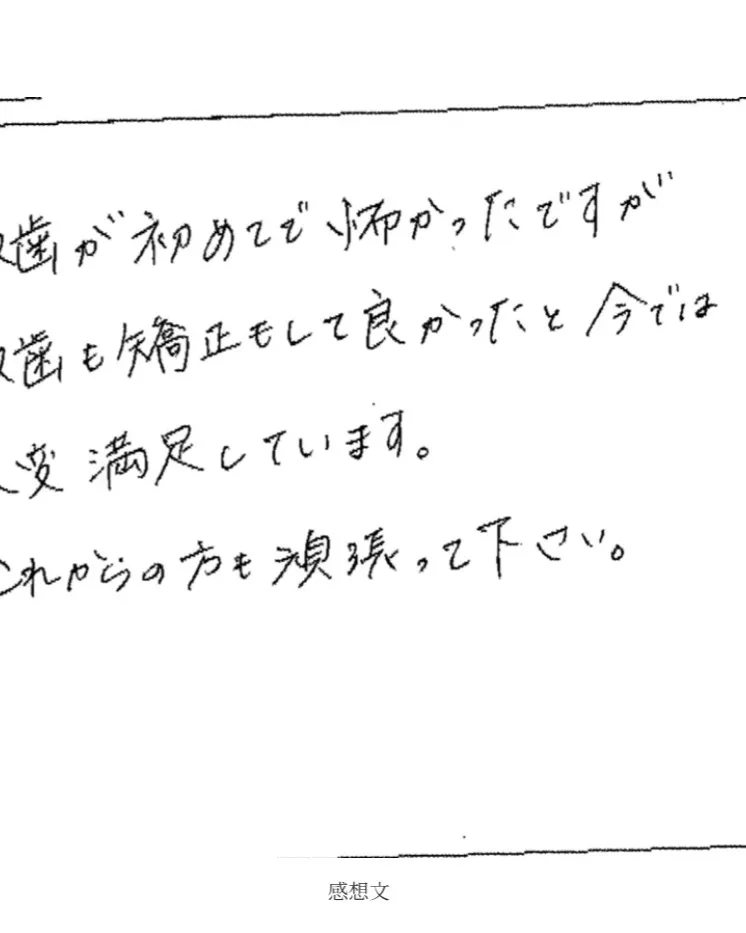 歯が初めてで怖かったですが
歯も矯正もして良かったと今では
変満足しています。
これからの方も頑張って下さい。
感想文